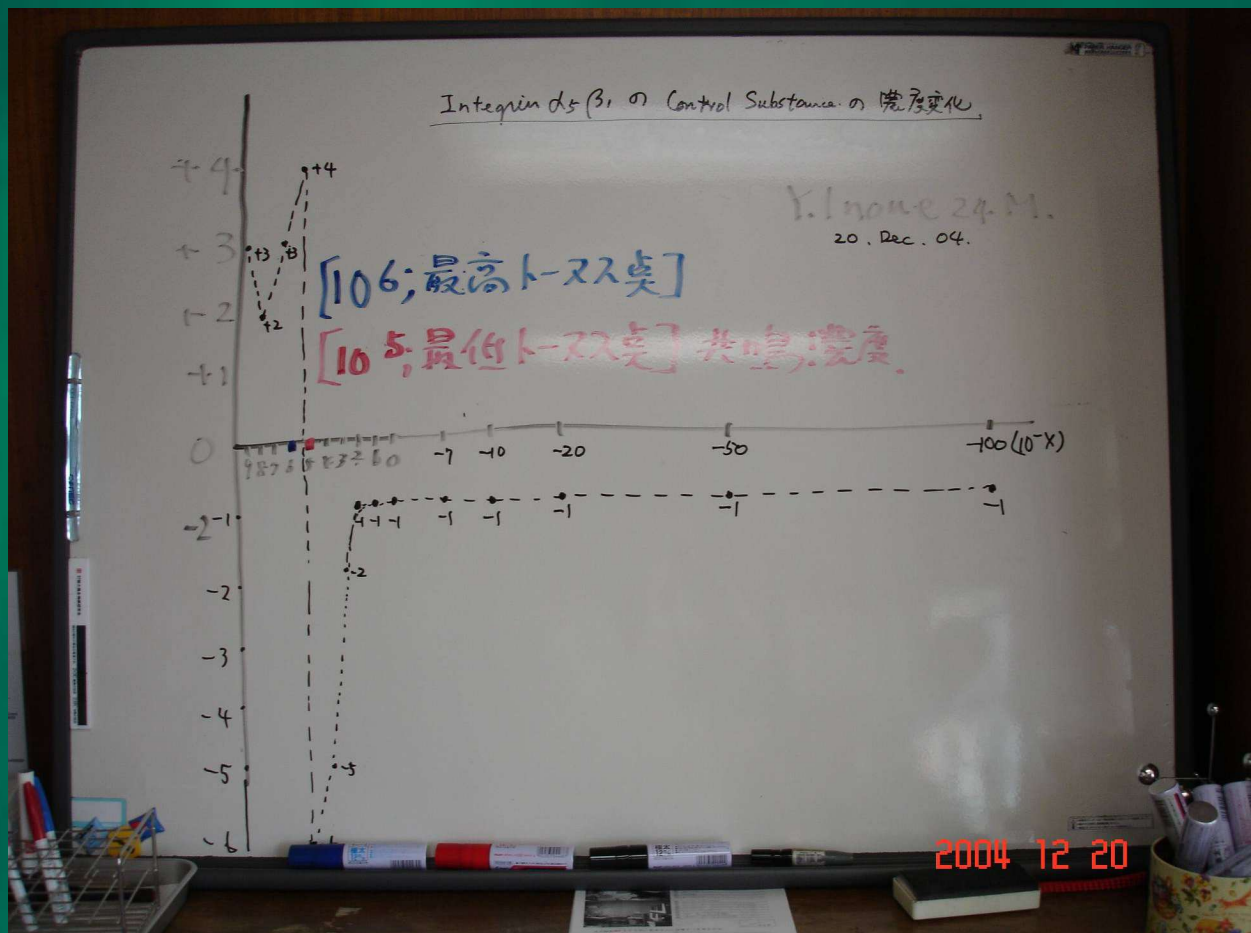 Integrin α5β1 の Control Substance の 濃度変化
+4
+4
Y. Inoue 24. M.
20. Dec. 04.
+3
+3
+3
[10 6; 最高トーヌス点]
+2
+2
[10 5; 最低トーヌス点] 共鳴濃度.
+1
0
9 8 7 6 5 4 3 2 1 0 -7 -10 -20 -50 -100 (10-X)
-2 -1
-1 -1 -1 -1 -1 -1 -1
-2
-2
-3
-4
-5
-5
-6
2004 12 20